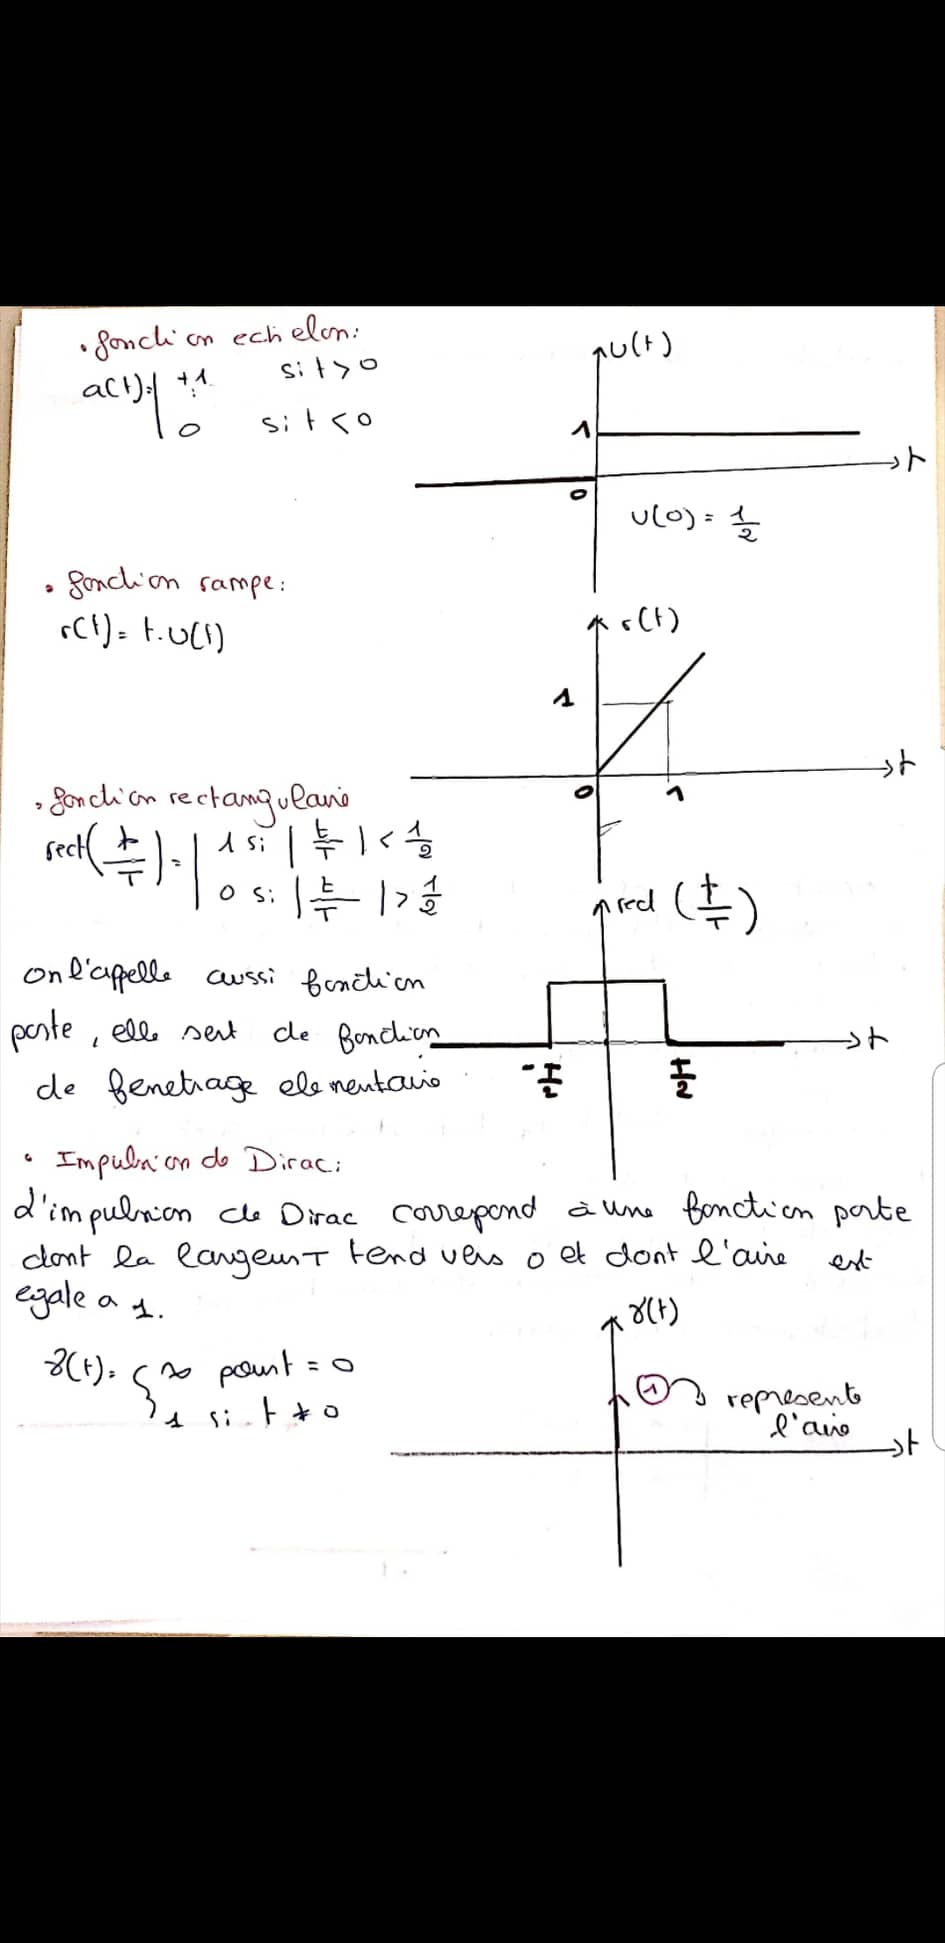 • fonction echelon:
a(t)= | +1 si t>0
| 0 si t<0
U(t)
1
t
0
U(0) = 1/2
• fonction rampe:
r(t) = t.U(t)
r(t)
1
t
0 1
• fonction rectangulaire
rect(t/T) = | 1 si |t/T| < 1/2
| 0 si |t/T| > 1/2
rect (t/T)
on l'apelle aussi fonction
porte, elle sert de fonction
de fenetrage elementaire
t
-T/2 T/2
• Impulsion de Dirac:
L'impulsion de Dirac correpond à une fonction porte
dont la largeur T tend vers 0 et dont l'aire est
egale a 1.
δ(t)
δ(t) = { ∞ pour t = 0
1 si t ≠ 0
1 represente
l'aire
t